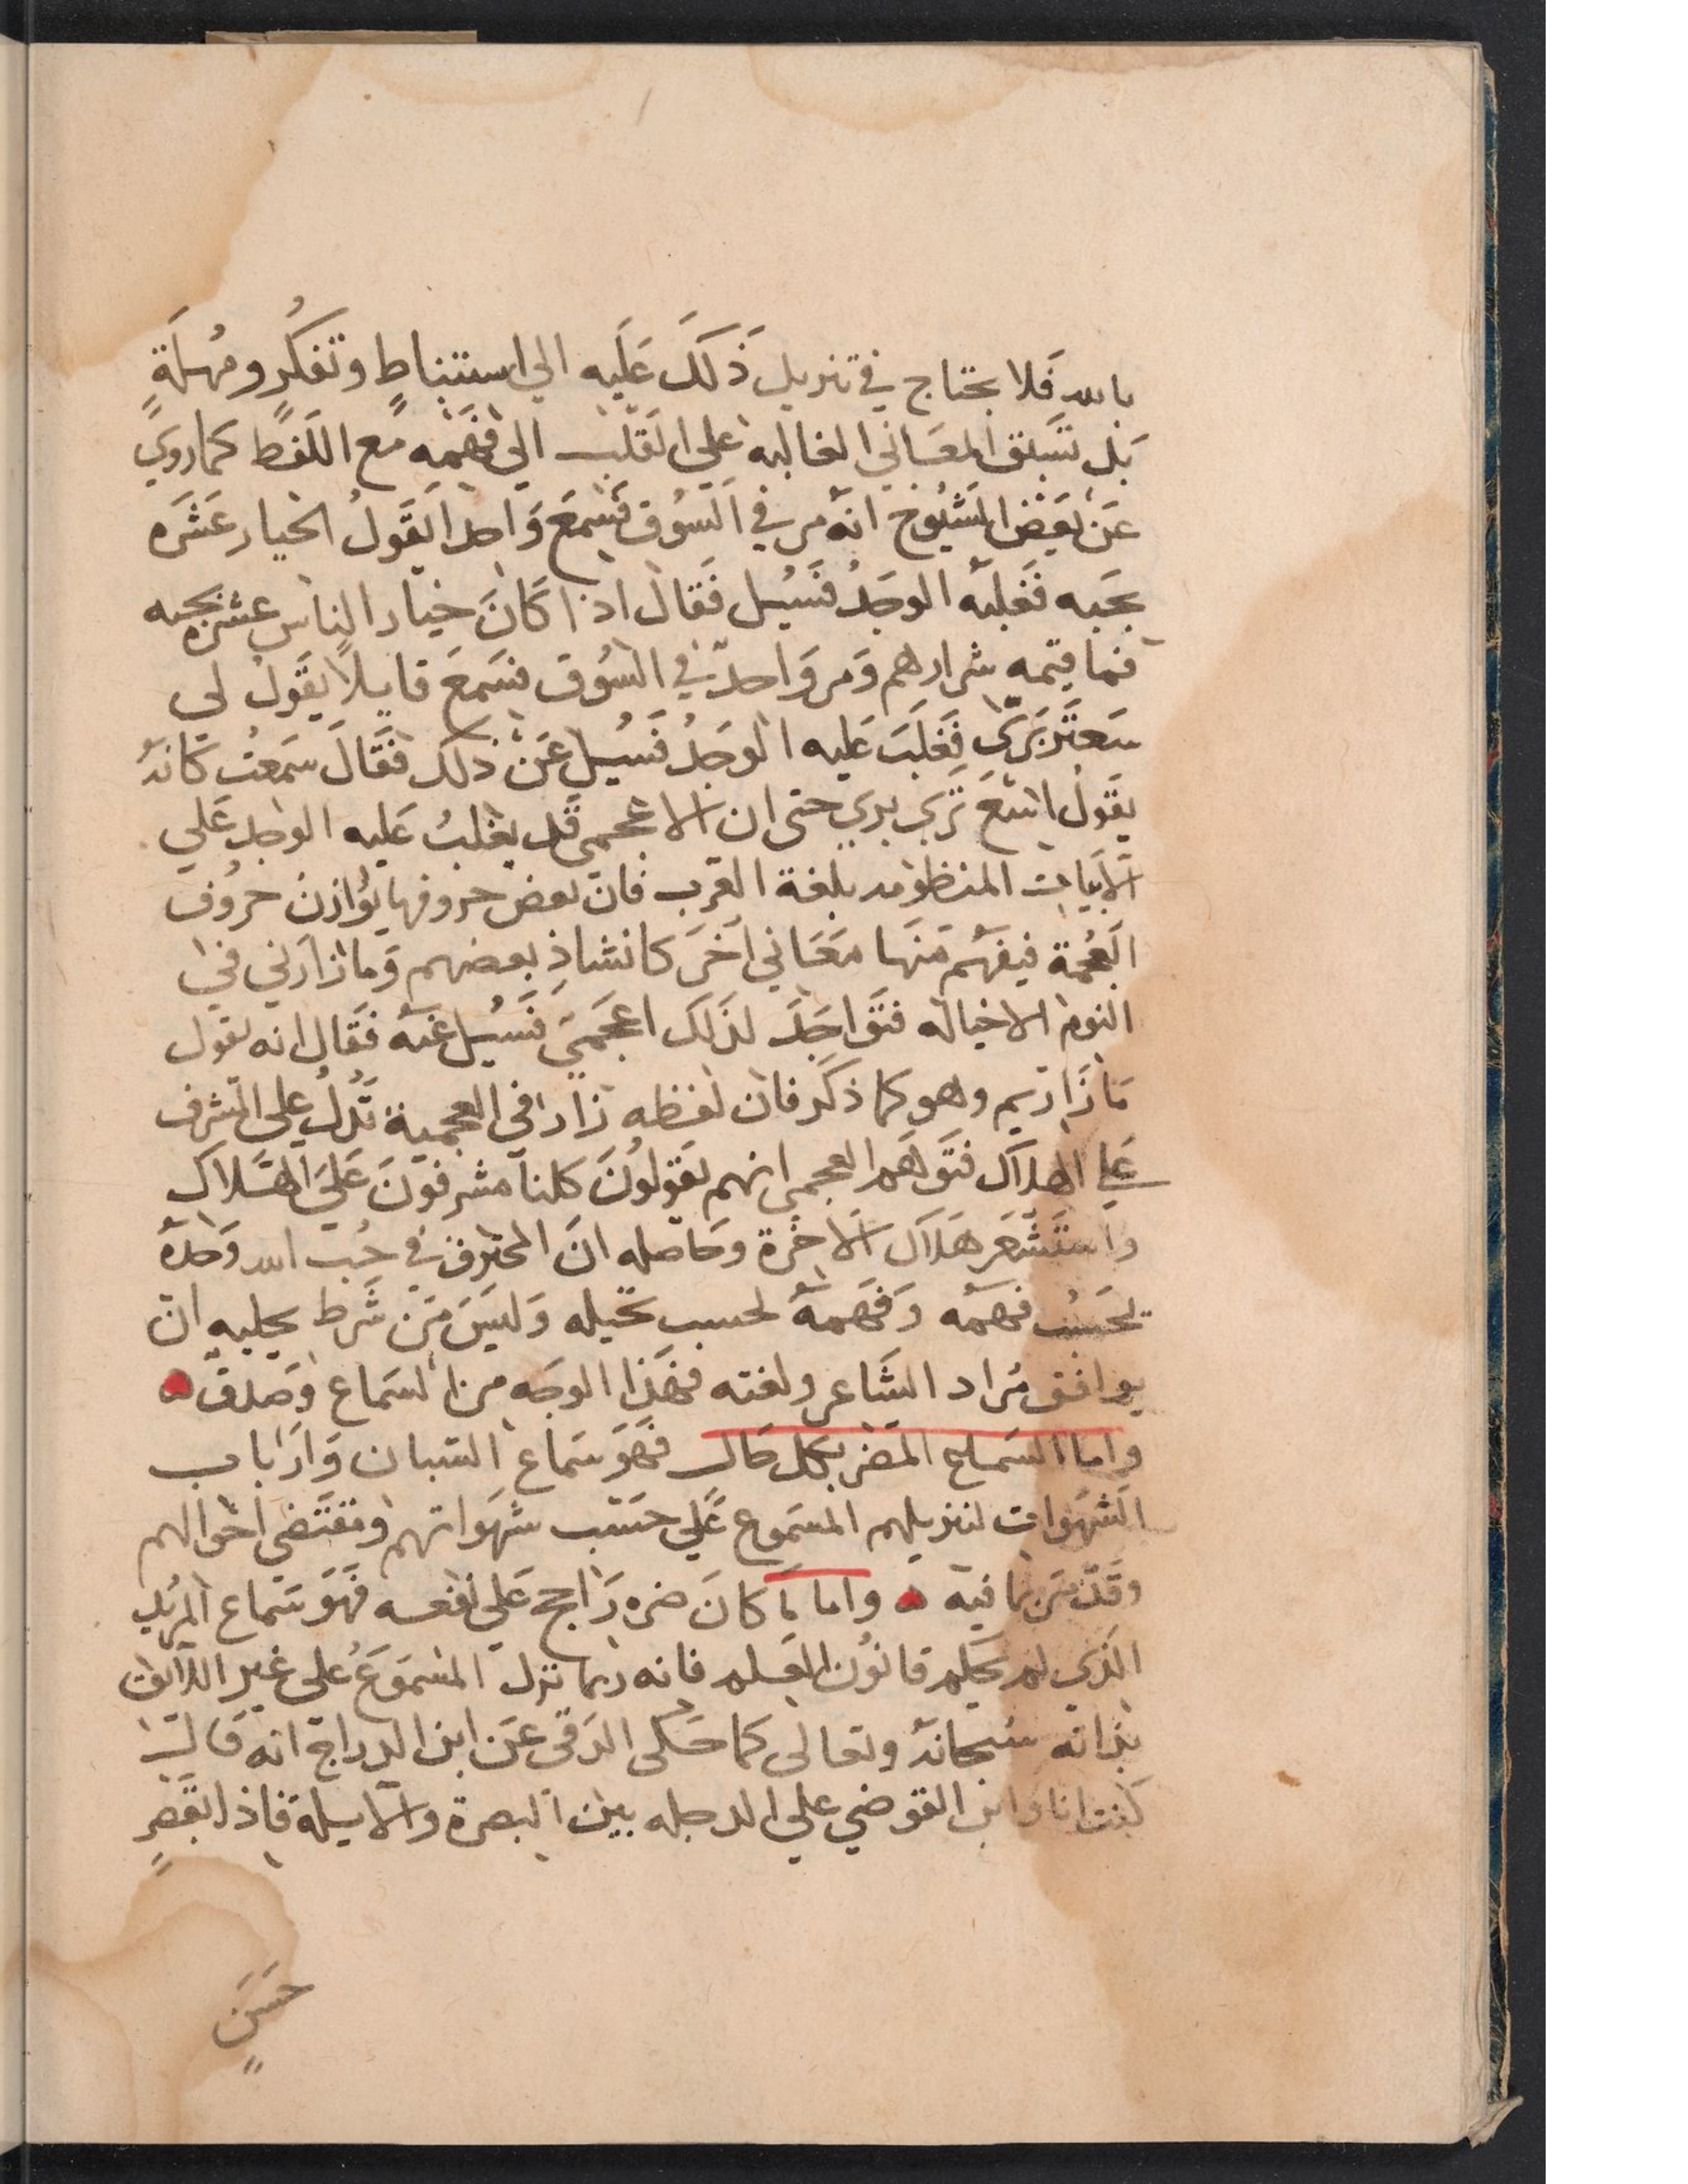 بالله فَلا يحتاج في تنزيل ذَلكَ عَلَيه الي استنباطٍ وتفكُرٍ ومُهلَةٍ
بَل تسَبق المعَاني الغالبه علي القَلب الي فَهمه مَع اللَفظ كما روي
عَن بَعَض الشيُوخ انه مر في السُوق فسَمعَ وَاحدا يَقَولُ الخيار عَشَره
بحَبه فَغلبَه الوجَدُ فسَيُل فَقال اذا كَانَ خيار الناس عشره بحبه
فما قيمه شرارهم وَمر وَاحد في السُوق فسَمعَ قايلا يَقَولُ لي
سَعتَر بَرَّي فَغلَبَ عَليه الوجَدُ فسَيُل عَن ذلك فَقَالَ سَمعتُ كانه
يقَولُ اسَعَ تَرَي بري حتى ان الاعجمي قَد يغلبُ عَليه الوجد عَلي
الابيات المنظومه بلغة العَرب فان بعض حروفها يُوَازنُ حروُف
العُجمة فيفهَم منَها معَاني اخَرَ كانشاد بعضهم وَما زارني في
النوم الا خياله فتَوَاجَدَ لذلك اعجَميَ فَسَيُل عَنه فقَال انه يقول
مَا زَاريم وهو كما ذكَر فان لفظه زار في العجمية تَدلُ علي المشرف
عَلي الهلاك فتَوَهم العجمي انهم يَقوَلوُنَ كلنا مشرفونَ عَلي الهَلاك
واستشَعَر هَلاك الاخرة وحَاصله انَ المحترق في حُب الله وَجدهُ
بحَسَب فهمَه وَفَهَمهُ بحسب تخيله وَليَسَ مَن شَرط تخيله ان
يوافق مُراد الشاعر ولغته فهَذا الوجَه من السَماع وَصدق
واما السَماع المضر بكل حَال فَهوَ سَماع الشبان وَارَباب
الشهَوات لتنزيلهم المسَموع عَلي حسَب شهَواتهم ومقتَضي احَوالهم
وقَد مَر ما فيه واما مَا كانَ ضره رَاجح عَلي نفعه فَهوَ سَماع المريد
الذي لم يحكم قانوُن العلم فانه ربما نزل المسموَعَ علي غير اللائق
بذاته سُبحانه وتعالى كما حَكَى الدقى عَن ابن الدراج انه قَال
كنت انا وابن القوضي علي الدجله بين البصرة والابيلة فاذا بقَصرٍ
حَسَنٍ